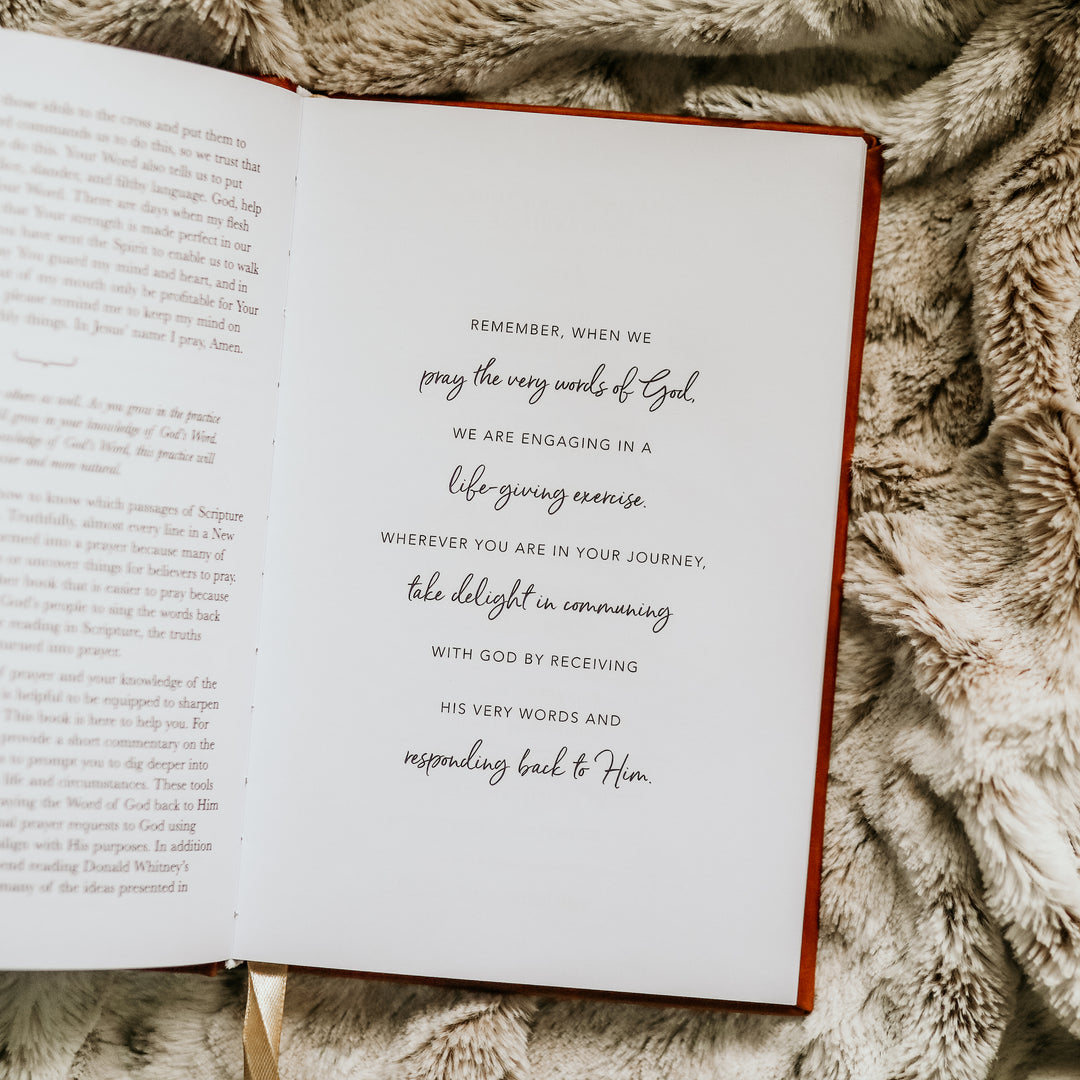 those idols to the cross and put them to
commands us to do this, so we trust that
do this. Your Word also tells us to put
slander, and filthy language. God, help
Your Word. There are days when my flesh
that Your strength is made perfect in our
have sent the Spirit to enable us to walk
You guard my mind and heart, and in
of my mouth only be profitable for Your
please remind me to keep my mind on
things. In Jesus' name I pray, Amen.
others as well. As you grow in the practice
grow in your knowledge of God's Word.
knowledge of God's Word, this practice will
and more natural.
how to know which passages of Scripture
Truthfully, almost every line in a New
turned into a prayer because many of
or uncover things for believers to pray.
book that is easier to pray because
God's people to sing the words back
reading in Scripture, the truths
turned into prayer.
prayer and your knowledge of the
is helpful to be equipped to sharpen
This book is here to help you. For
provide a short commentary on the
to prompt you to dig deeper into
life and circumstances. These tools
praying the Word of God back to Him
prayer requests to God using
align with His purposes. In addition
reading Donald Whitney's
many of the ideas presented in
REMEMBER, WHEN WE
pray the very words of God,
WE ARE ENGAGING IN A
life-giving exercise.
WHEREVER YOU ARE IN YOUR JOURNEY,
take delight in communing
WITH GOD BY RECEIVING
HIS VERY WORDS AND
responding back to Him.